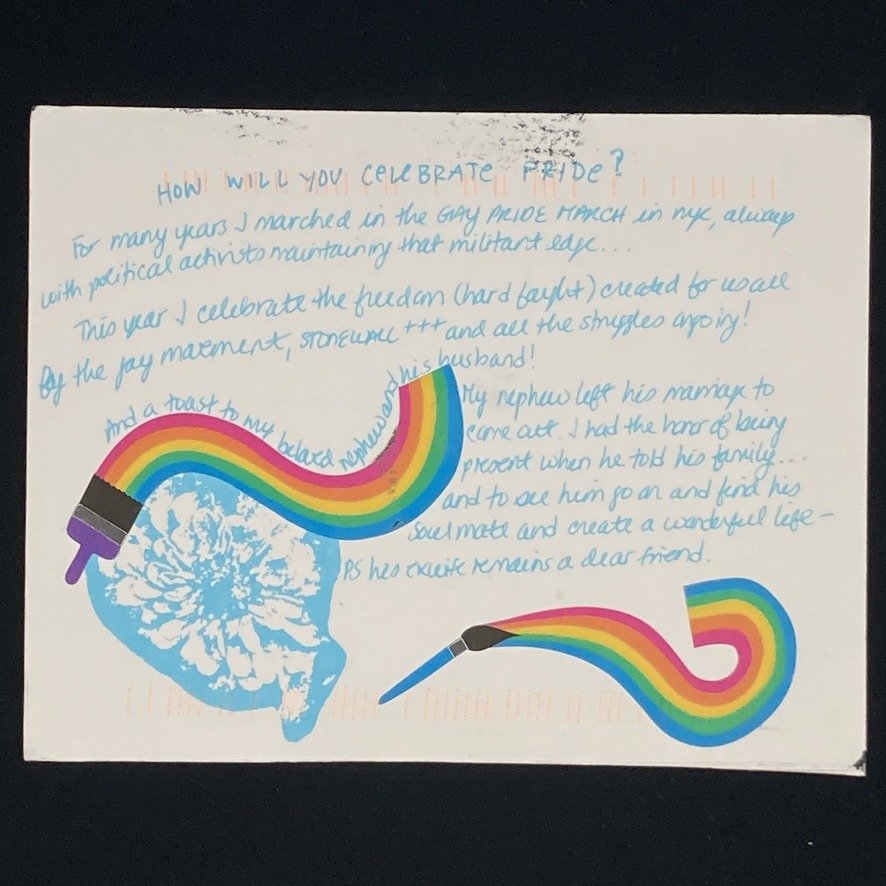 HOW WILL YOU CELEBRATE PRIDE?
For many years I marched in the GAY PRIDE MARCH in nyc, always
with political activists maintaining that militant edge...
This year I celebrate the freedom (hard faught) created for us all
By the gay movement, STONEWALL +++ and all the struggles ongoing!
And a toast to my beloved nephew and his husband!
My nephew left his marriage to
come out. I had the honor of being
present when he told his family...
and to see him go on and find his
soulmate and create a wonderful life -
PS his exwife remains a dear friend.